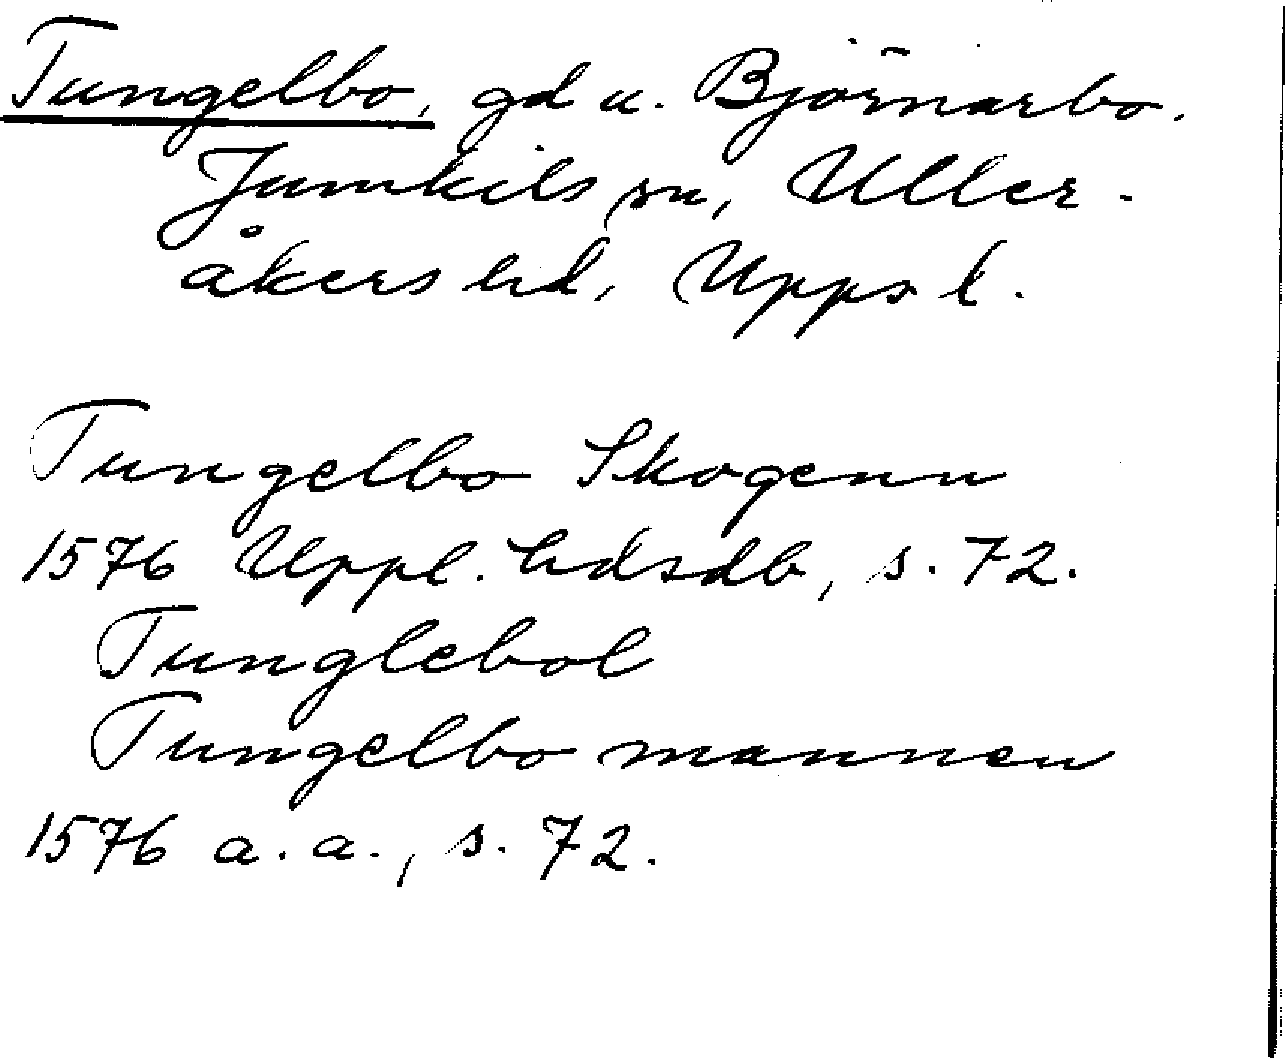 Tungelbo, gd u. Björnarbo,
Jumkils sn, Uller-
åkers hd, Upps l.
Tungelbo Skogenn
1576 Uppl. hdsdb, s. 72.
Tunglebol
Tungelbo mannen
1576 a.a., s. 72.